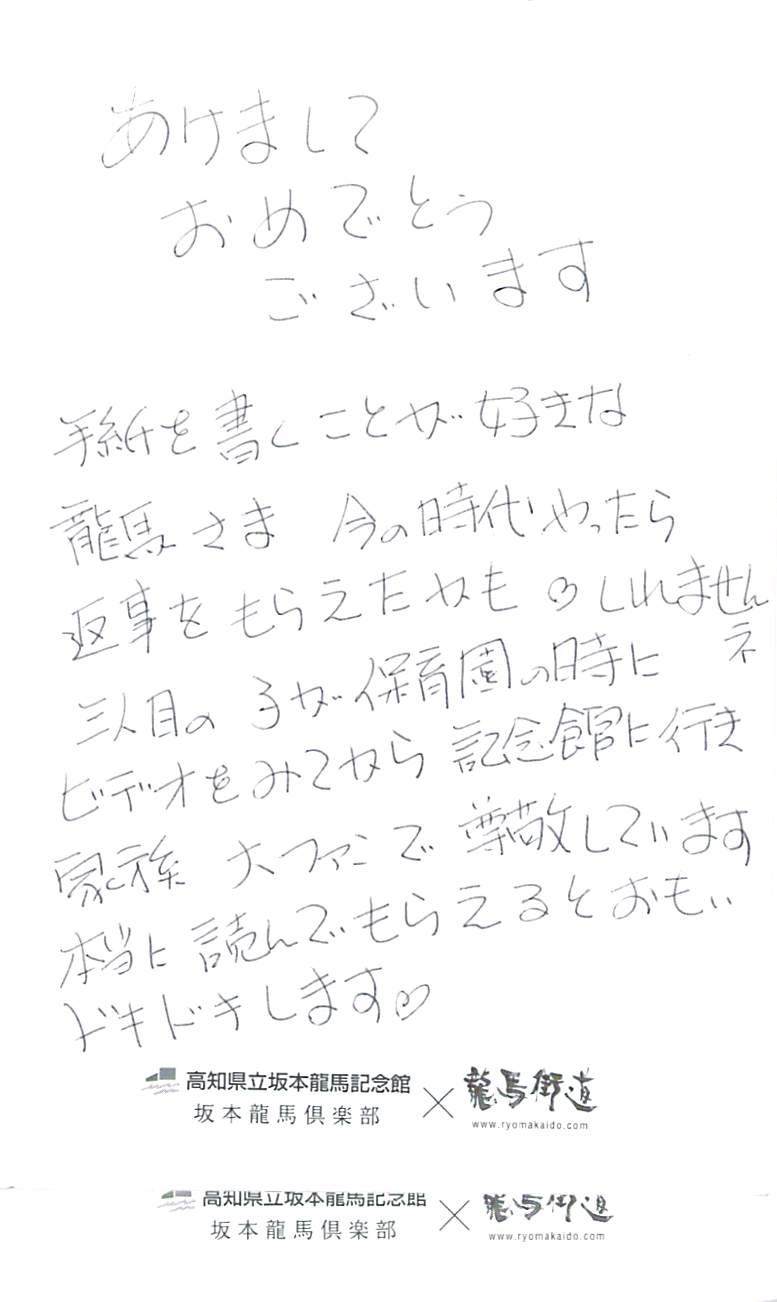 あけまして
おめでとう
ございます
手紙を書くことが好きな
龍馬さま 今の時代やったら
返事をもらえたかも♡しれません
ネ
三人目の子が保育園の時に
ビデオをみてから記念館に行き
家族 大ファンで尊敬しています
本当に読んでもらえるとおもい
ドキドキします♡
高知県立坂本龍馬記念館
坂本龍馬倶楽部
×
龍馬街道
www.ryomakaido.com
高知県立坂本龍馬記念館
坂本龍馬倶楽部
×
龍馬街道
www.ryomakaido.com